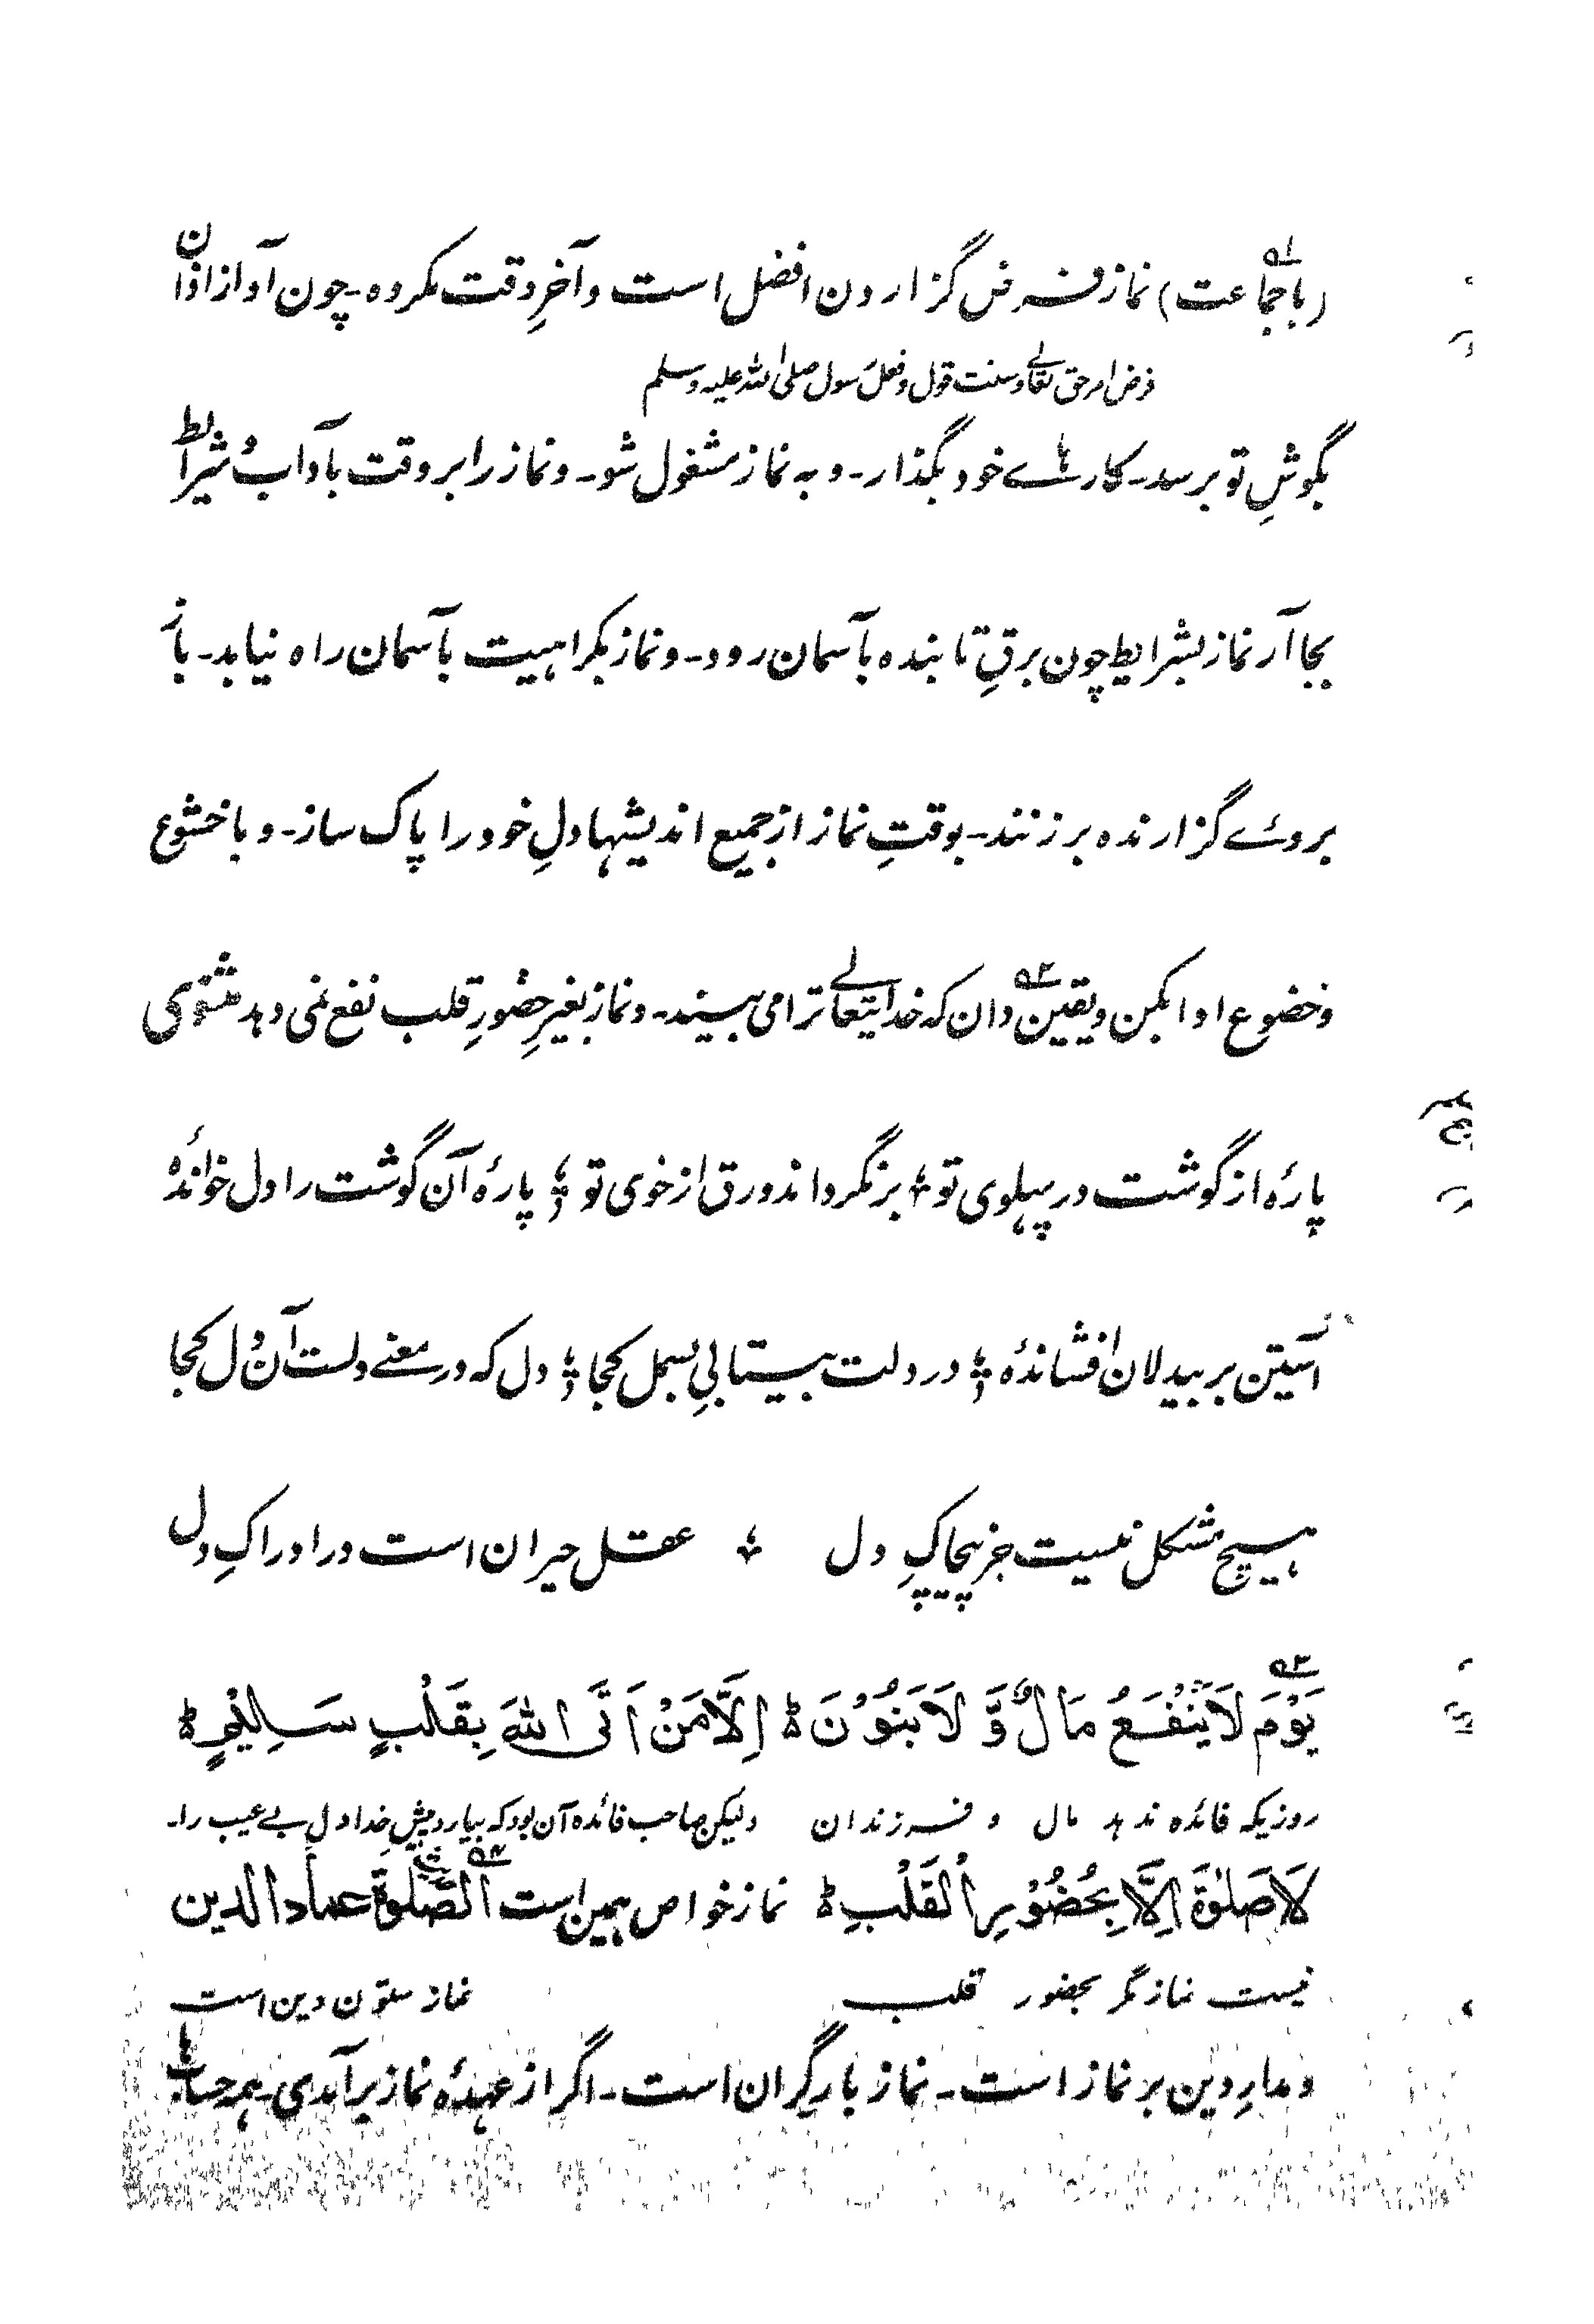 (باجماعت) نماز فرض گزاردن افضل است و آخرِ وقت مکروه۔ چون آواز اذان
فرض امر حق تعالےٰ و سنت قول و فعل رسول صلی اللہ علیہ وسلم
بگوشِ تو برسد۔ کارہاے خود بگذار۔ و بہ نماز مشغول شو۔ و نماز را بر وقت بآداب و شرائط
بجا آر نماز بشرایط چون برقِ تابندہ بآسمان رود۔ و نماز بکراہیت بآسمان راہ نیابد۔ باز
بروئے گزارندہ بر زنند۔ بوقتِ نماز از جمیع اندیشہا دلِ خود را پاک ساز۔ و با خشوع
و خضوع ادا بکن و یقین دان کہ خدایتعالےٰ ترا می بیند۔ و نماز بغیرِ حضورِ قلب نفع نمی دہد مثنوی
پارۂ از گوشت در پہلوی تو ؛ بر نگرداند ورق از خوی تو ؛ پارۂ آن گوشت را دل خواندۂ
آستین بر بیدلان افشاندۂ ؛ در دلت بیتابیِ بسمل کجا ؛ دل کہ در معنے دلست آن دل کجا
ہیچ مشکل نیست جز پیچاکِ دل ؛ عقل حیران است در ادراکِ دل
یَوْمَ لَا یَنْفَعُ مَالٌ وَّ لَا بَنُوْنَ ۃ اِلَّا مَنْ اَتَی اللہَ بِقَلْبٍ سَلِیْمٍ ۃ
روزیکہ فائدہ ندہد مال و فرزندان ولیکن صاحب فائدہ آن بود کہ بیارد پیشِ خدا دلِ بے عیب را۔
لَا صَلٰوۃَ اِلَّا بِحُضُوْرِ الْقَلْبِ ۃ نماز خواص ہمین است الصَّلٰوۃ عماد الدین
نیست نماز مگر بحضور قلب نماز ستون دین است
و مدارِ دین بر نماز است۔ نماز بارِ گران است۔ اگر از عہدۂ نماز برآمدی۔ ہمہ حسابہا